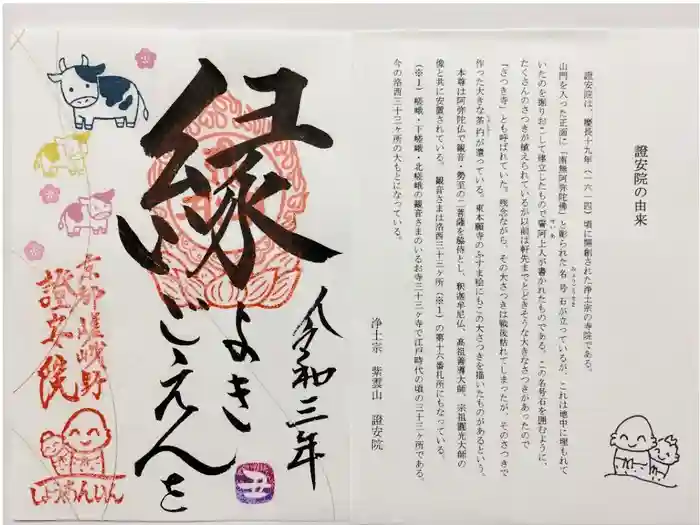 縁
よき
ごえんを
令和三年
丑
京都嵯峨野
證安院
しょうあんいん
證安院の由来
證安院は、慶長十九年(一六一四)頃に開創された浄土宗の寺院である。
山門を入った正面に「南無阿弥陀佛」と彫られた名号石が立っているが、これは地中に埋もれて
みょうごうせき
いたのを掘りおこして建立したもので誓阿上人が書かれたものである。この名号石を囲むように、
せいあ
たくさんのさつきが植えられているが以前は軒先までとどきそうな大きなさつきがあったので
「さつき寺」とも呼ばれていた。残念ながら、その大さつきは戦後枯れてしまったが、そのさつきで
作った大きな茶杓が遺っている。東本願寺のふすま絵にもこの大さつきを描いたものがあるという。
本尊は阿弥陀仏で観音・勢至の二菩薩を脇侍とし、釈迦牟尼仏、高祖善導大師、宗祖圓光大師の
像と共に安置されている。観音さまは洛西三十三ヶ所(※1)の第十六番札所にもなっている。
(※1)嵯峨・下嵯峨・北嵯峨の観音さまのいるお寺三十三ヶ寺で江戸時代の頃の三十三ヶ所である。
今の洛西三十三ヶ所の大もとになっている。
浄土宗 紫雲山 證安院